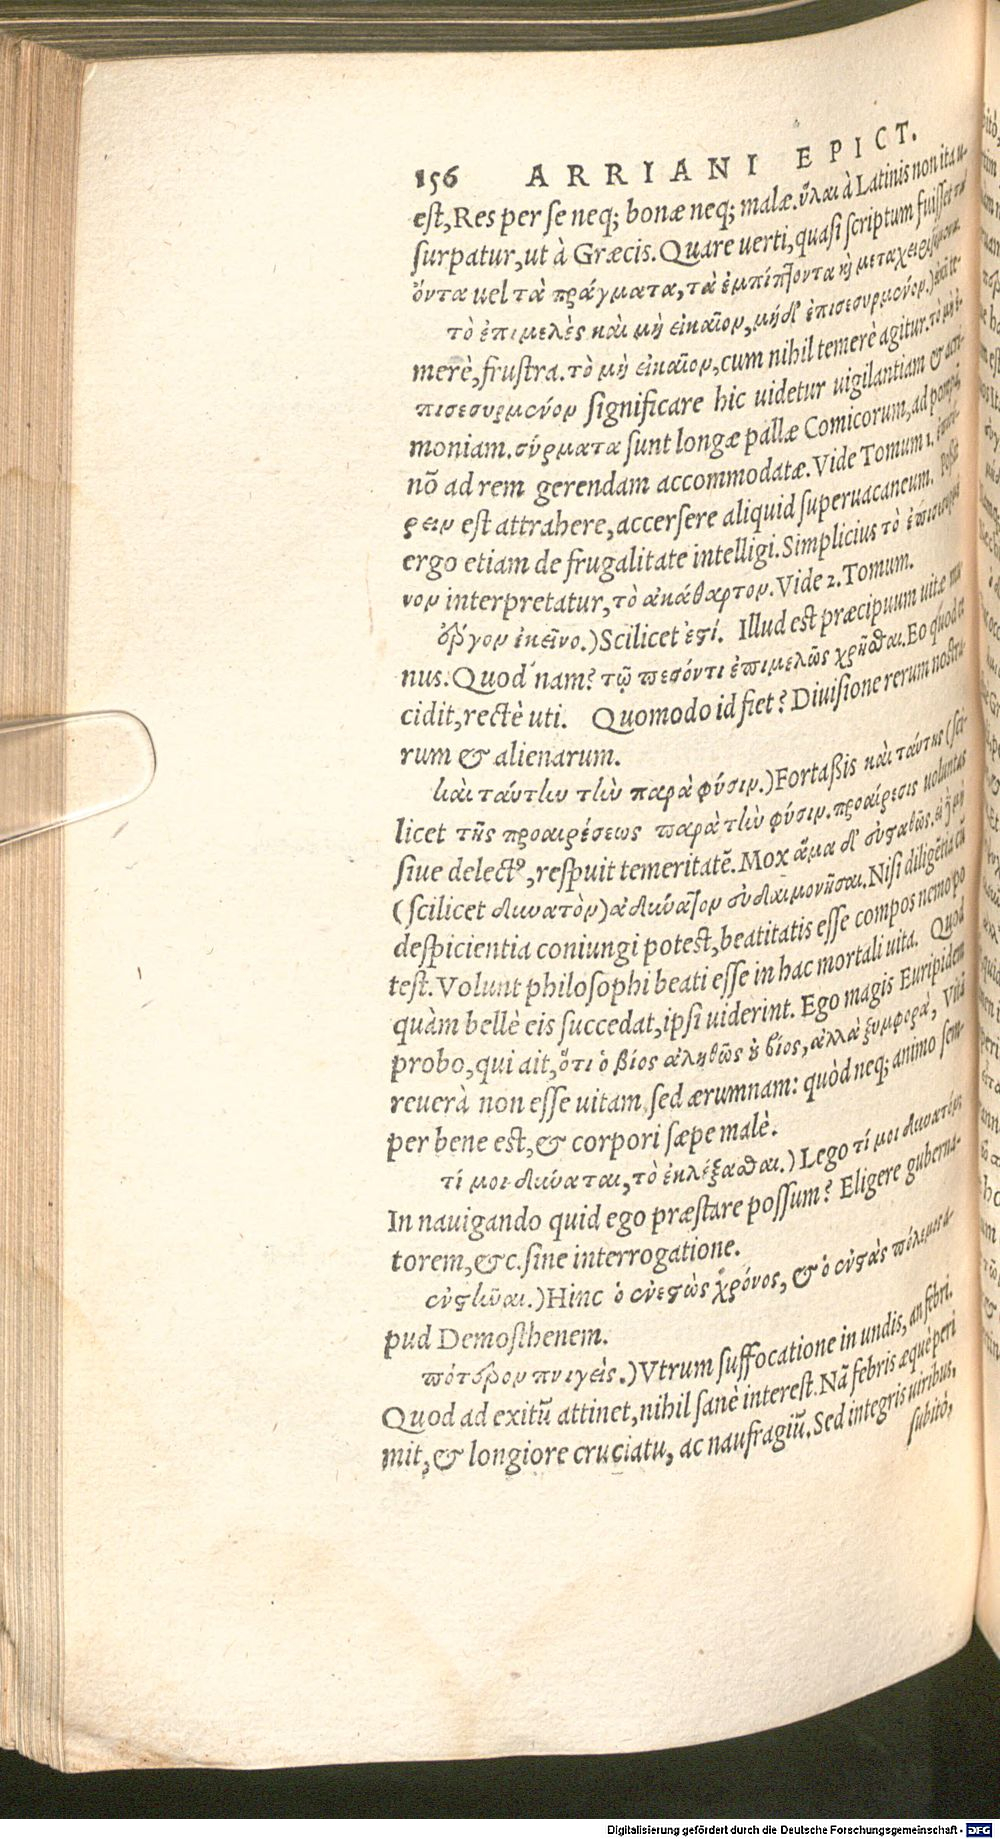 156 ARRIANI EPICT.
est, Res per se neq; bonæ neq; malæ. ὕλαι à Latinis non ita u-
surpatur, ut à Græcis. Quare uerti, quasi scriptum fuisset τὰ
ὄντα uel τὰ πράγματα, τὰ ἐμπίπτοντα ἢ μεταχειριζόμενα.
τὸ ἐπιμελὲς καὶ μὴ εἰκαῖον, μηδ' ἐπισεσυρμένον.)
merè, frustra. τὸ μὴ εἰκαῖον, cum nihil temerè agitur. τὸ μὴ ἐ-
πισεσυρμένον significare hic uidetur uigilantiam & acri-
moniam. σύρματα sunt longæ pallæ Comicorum, ad pompã,
nõ ad rem gerendam accommodatæ. Vide Tomum 1. ἐπισύ-
ρειν est attrahere, accersere aliquid superuacaneum. Posset
ergo etiam de frugalitate intelligi. Simplicius τὸ ἐπισεσυρμέ
νον interpretatur, τὸ ἀκάθαρτον. Vide 2. Tomum.
ἔργον ἐκεῖνο.) Scilicet ἐστί. Illud est præcipuum uitæ mu
nus. Quod nam? τῷ πεσόντι ἐπιμελῶς χρῆσθαι. Eo quod ce
cidit, rectè uti. Quomodo id fiet? Diuisione rerum nostra-
rum & alienarum.
καὶ ταύτην τὴν παρὰ φύσιν.) Fortaßis καὶ ταύτης (sci-
licet τῆς προαιρέσεως παρὰ τὴν φύσιν. προαίρεσις uoluntas
siue delectꝰ, respuit temeritatẽ. Mox ἅμα δ' εὐσταθῶς. εἰ μὴ
(scilicet δυνατὸν) ἀδύνατον εὐδαιμονῆσαι. Nisi diligẽtia cũ
despicientia coniungi potest, beatitatis esse compos nemo po
test. Volunt philosophi beati esse in hac mortali uita. Quod
quàm bellè eis succedat, ipsi uiderint. Ego magis Euripidem
probo, qui ait, ὅτι ὁ βίος ἀληθῶς ȣ βίος, ἀλλὰ ξυμφορὰ, Vitã
reuerà non esse uitam, sed ærumnam: quòd neq; animo sem-
per bene est, & corpori sæpe malè.
τί μοι δύναται, τὸ ἐκλέξασθαι.) Lego τί μοι δυνατόν;
In nauigando quid ego præstare possum? Eligere guberna-
torem, &c. sine interrogatione.
ἐνστῆναι.) Hinc ὁ ἐνεστὼς χρόνος, & ὁ ἐνστὰς πόλεμος a-
pud Demosthenem.
πότερον πνιγεὶς.) Vtrum suffocatione in undis, an febri.
Quod ad exitũ attinet, nihil sanè interest. Nã febris æquè peri
mit, & longiore cruciatu, ac naufragiũ. Sed integris uiribus,
subitò,
Digitalisierung gefördert durch die Deutsche Forschungsgemeinschaft - DFG